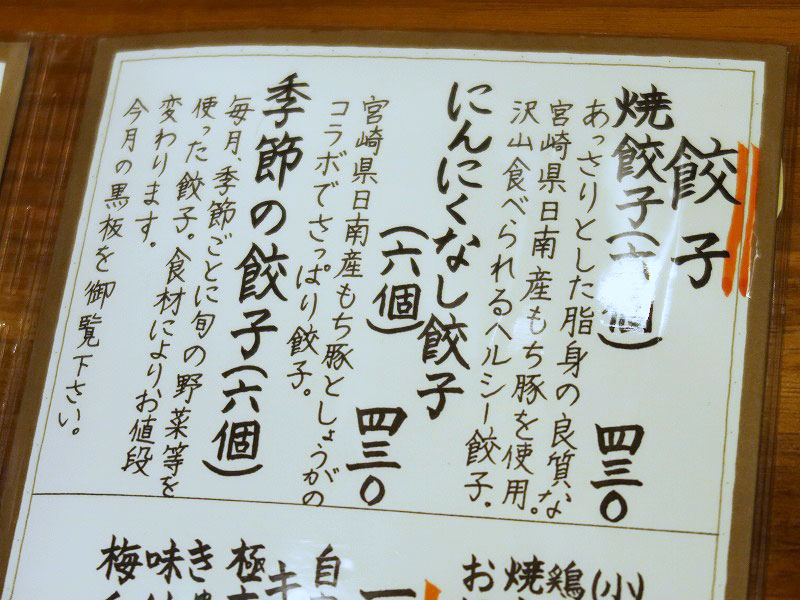 餃子
焼餃子(六個)
四三〇
あっさりとした脂身の良質な
宮崎県日南産もち豚を使用。
沢山食べられるヘルシー餃子。
にんにくなし餃子
(六個)
四三〇
宮崎県日南産もち豚としょうがの
コラボでさっぱり餃子。
季節の餃子(六個)
毎月、季節ごとに旬の野菜等を
使った餃子。食材によりお値段
変わります。
今月の黒板を御覧下さい。
(小
鶏
焼
お
自
キ
極
き
味
梅